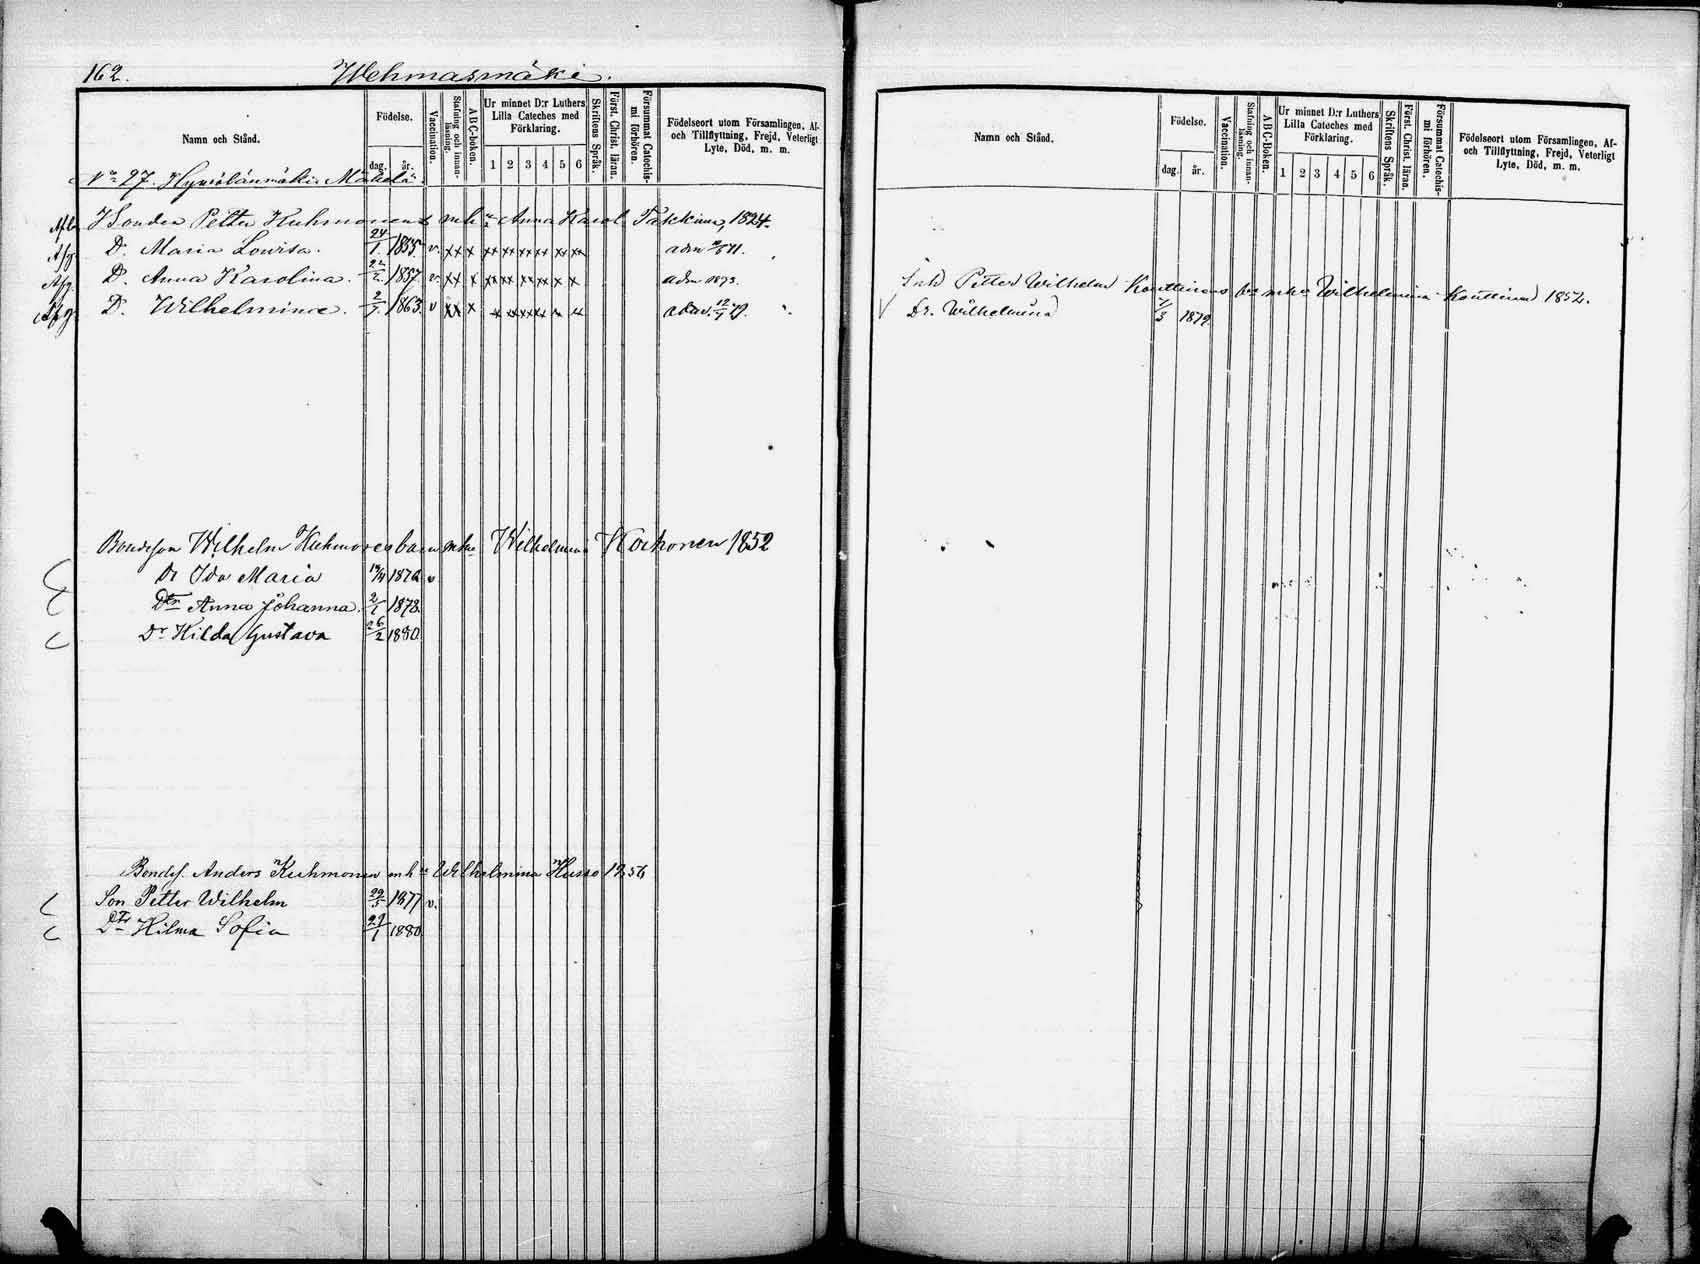 162. Wehmasmäki.
Namn och Stånd.
Födelse.
dag. år.
Vaccination.
Stafning och innan-läsning.
A B C-boken.
Ur minnet D:r Luthers Lilla Cateches med Förklaring.
1 2 3 4 5 6
Skriftens Språk.
Först. Christ. läran.
Försummat Catechis-mi förhören.
Födelseort utom Församlingen, Af- och Tillflyttning, Frejd, Veterligt Lyte, Död, m. m.
No 27. Mäkelä
Bonden Petter Kuhmonens mh Anna Karol. Takkinen, 1824.
Afg. D. Maria Lovisa. 24/1 1855. v. xx x xx xx xx xx xx xx
Afg. D. Anna Karolina. 22/2 1857. v. xx x xx xx xx x x x adm 1873.
Afg. D. Wilhelmina. 2/7 1863. v xx x x xx xx xx x x
Bondeson Wilhelm Kuhmonen barn mhu Wilhelmina Korhonen 1852
Dr Ida Maria 1876 v
Dtr Anna Johanna. 2/1 1878.
Dr Hilda Gustava 26/2 1880
Bondes. Anders Kuhmonen mh Wilhelmina Husso 1856
Son Petter Wilhelm 29/3 1877 v.
Dtr Hilma Sofia 29/1 1880
Namn och Stånd.
Födelse.
dag. år.
Vaccination.
Stafning och innan-läsning.
A B C-boken.
Ur minnet D:r Luthers Lilla Cateches med Förklaring.
1 2 3 4 5 6
Skriftens Språk.
Först. Christ. läran.
Försummat Catechis-mi förhören.
Födelseort utom Församlingen, Af- och Tillflyttning, Frejd, Veterligt Lyte, Död, m. m.
Inh Petter Wilhelm Kouttinens mhu Wilhelmina Kouttinen 1852.
Dr. Wilhelmina 1/3 1879.